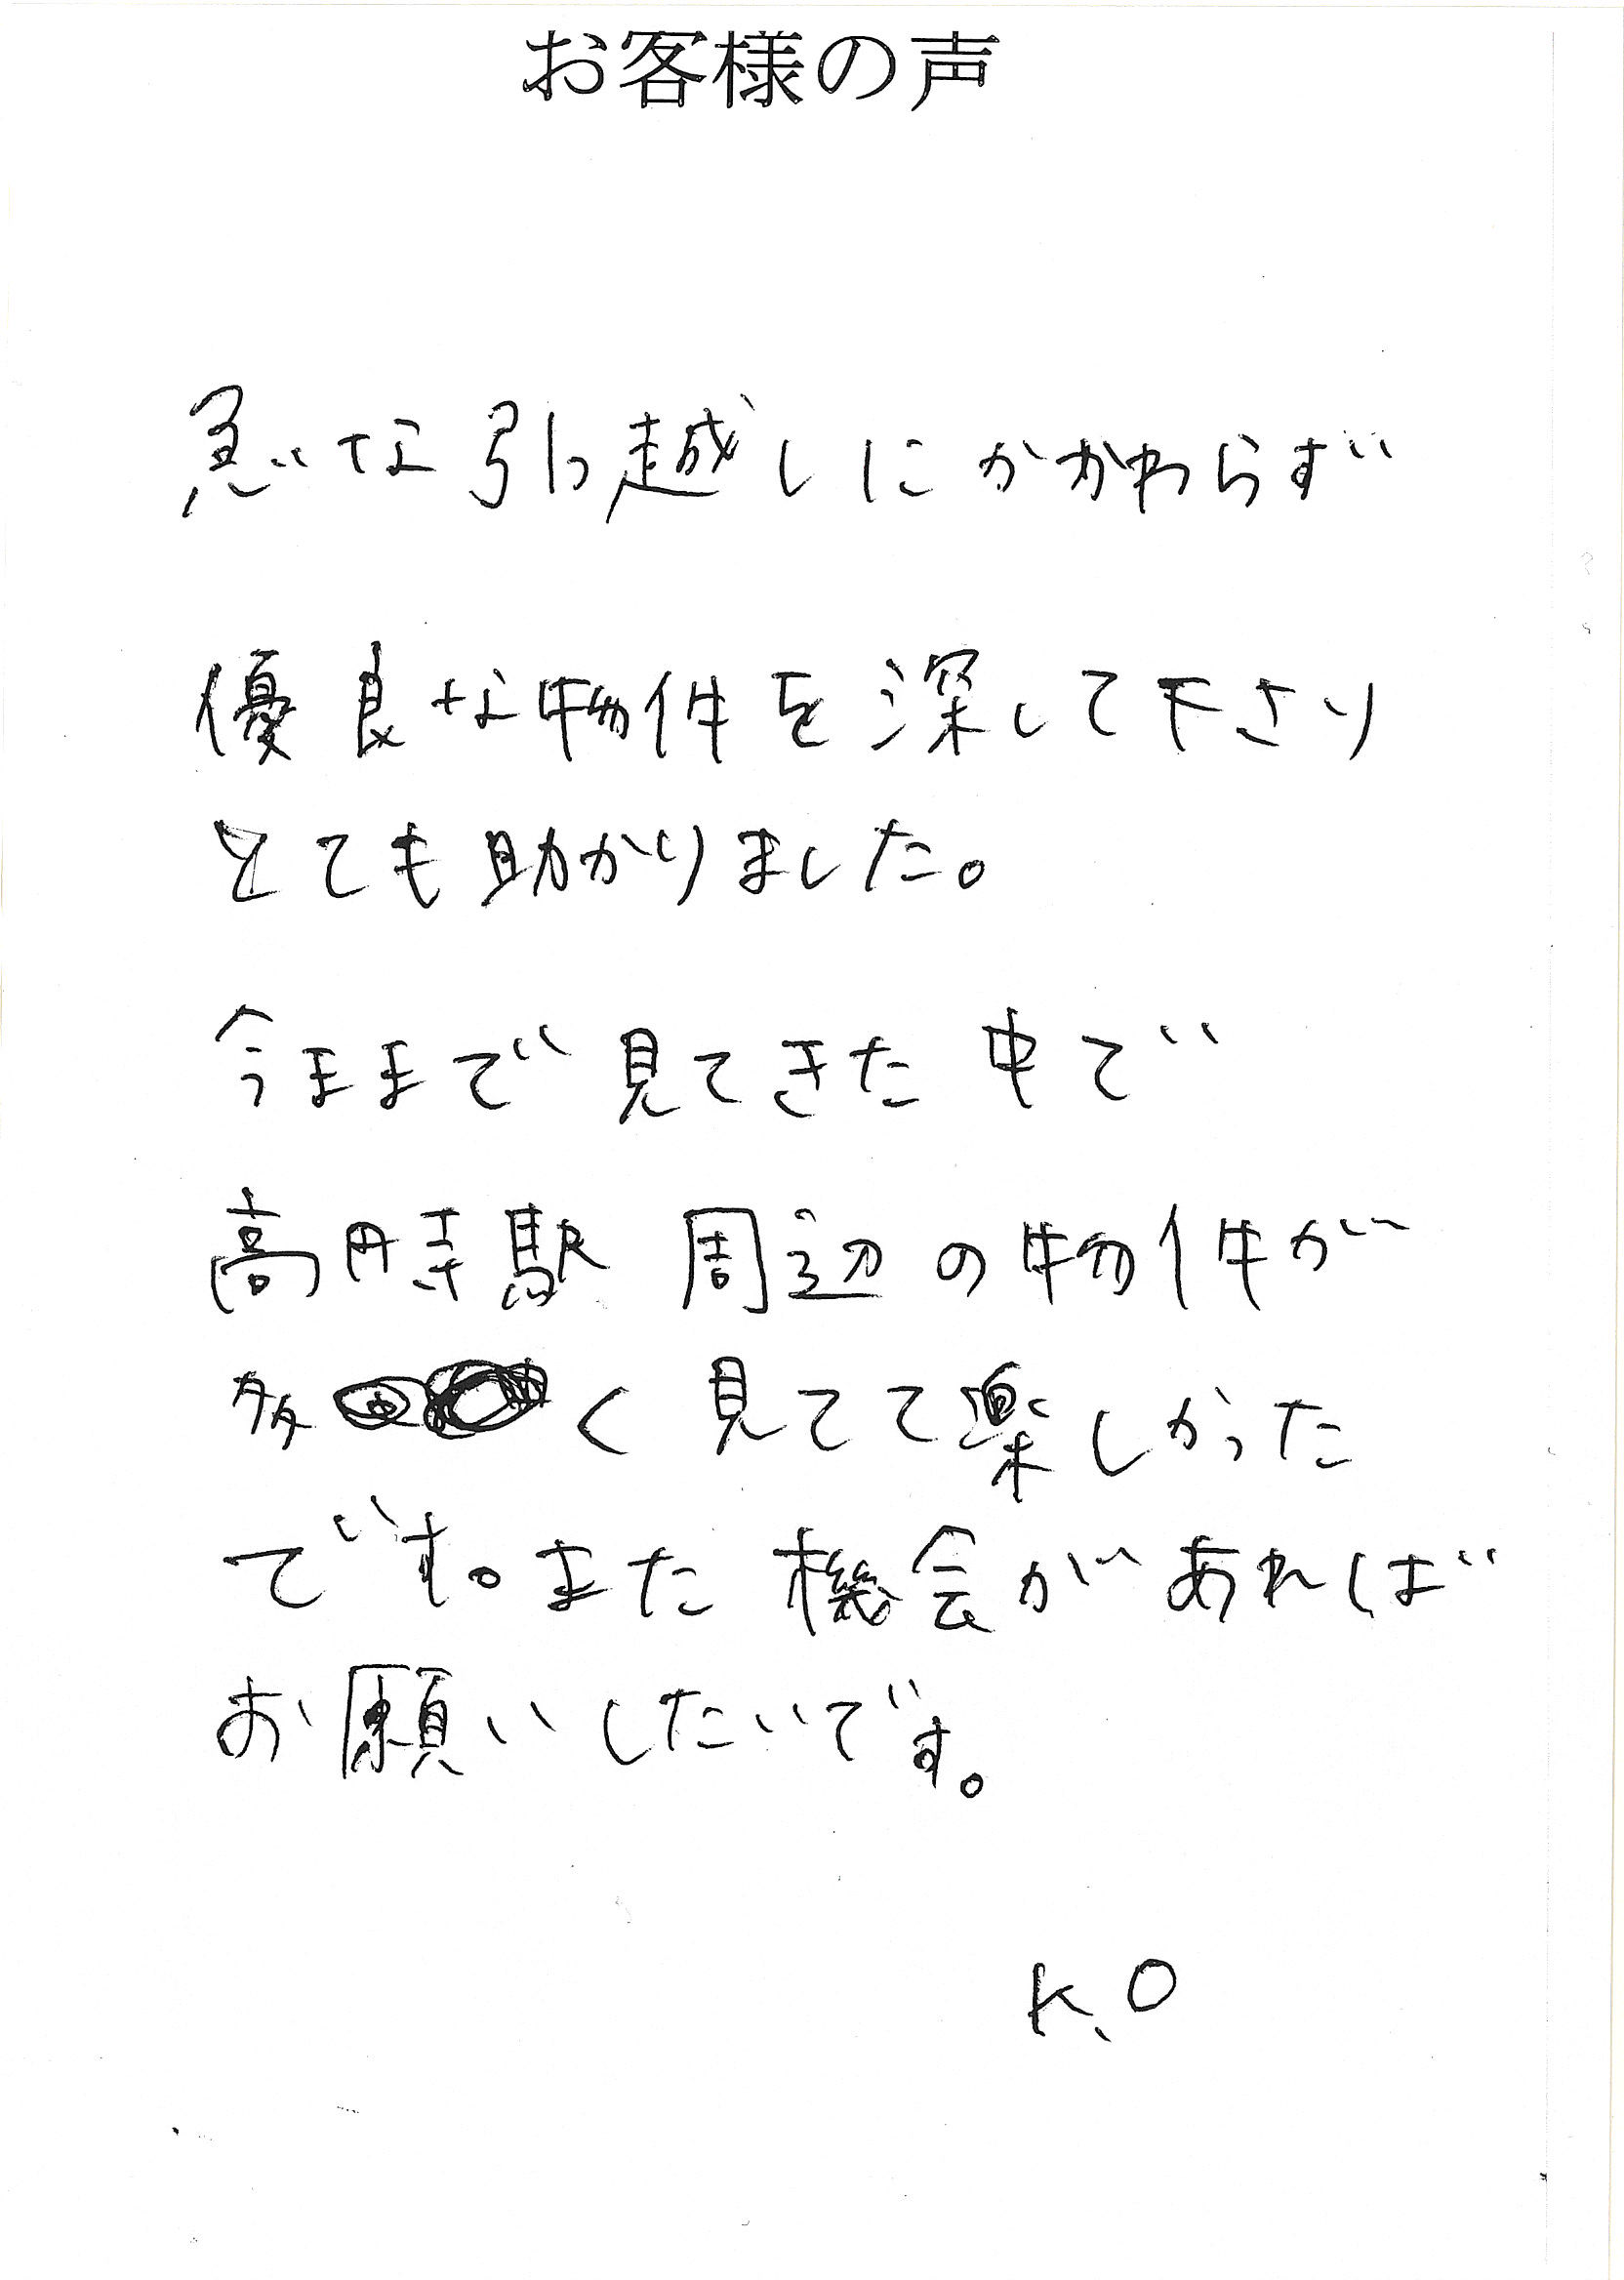 お客様の声
急な引っ越しにかかわらず
優良な物件を深して下さり
とても助かりました。
今ままで見てきた中で
高円寺駅 周辺の物件が
多く見てて楽しかった
です。また機会があれば
お願いしたいです。
K.O